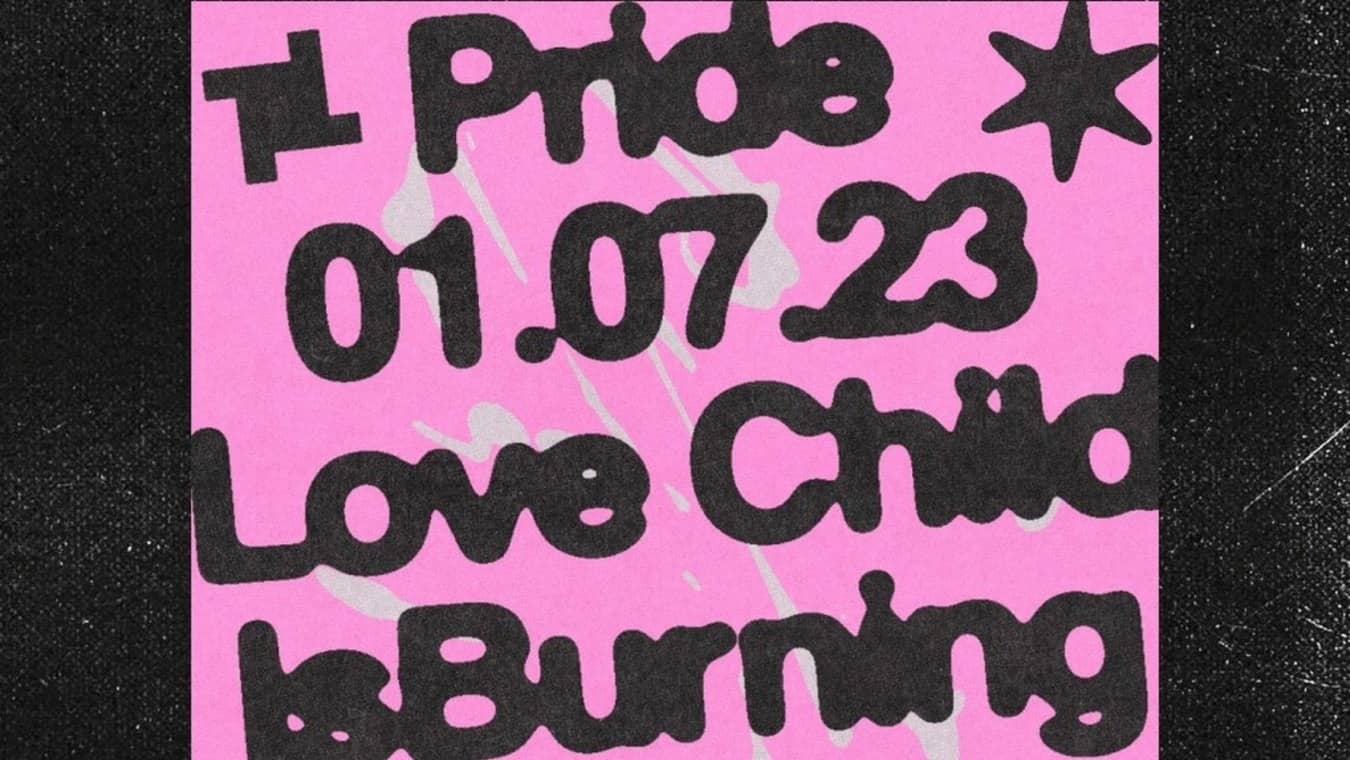 Pride
01.07.23
Love Child
Is Burning